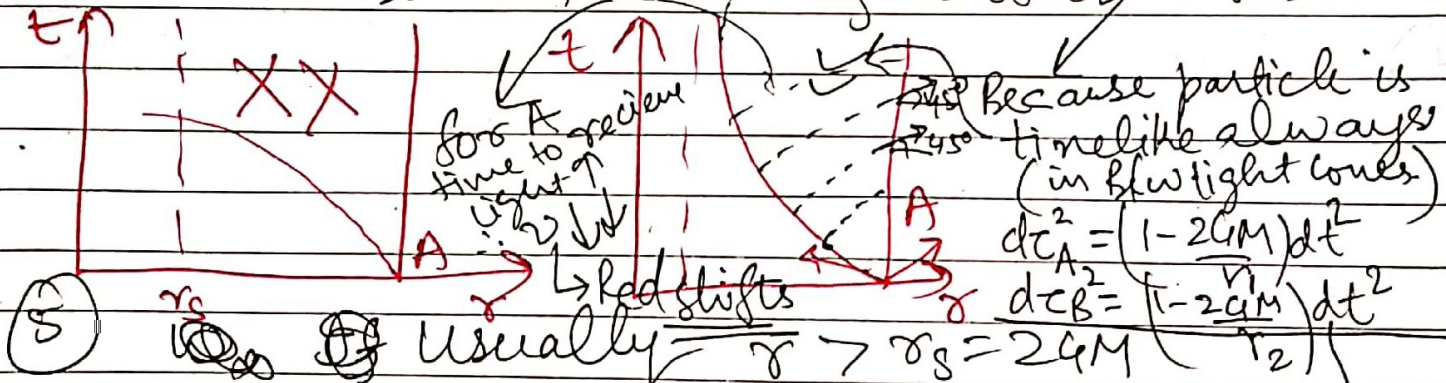 t
X X
for A
time to recieve
light ↑
ν ↓↓
↳ Red shifts
A
r_s
r
t
45°
45°
A
r
Because particle is
timelike always
(in B/w light cones)
dτ_A² = (1 - 2GM/r_1) dt²
dτ_B² = (1 - 2GM/r_2) dt²
5
Usually r > r_s = 2GM